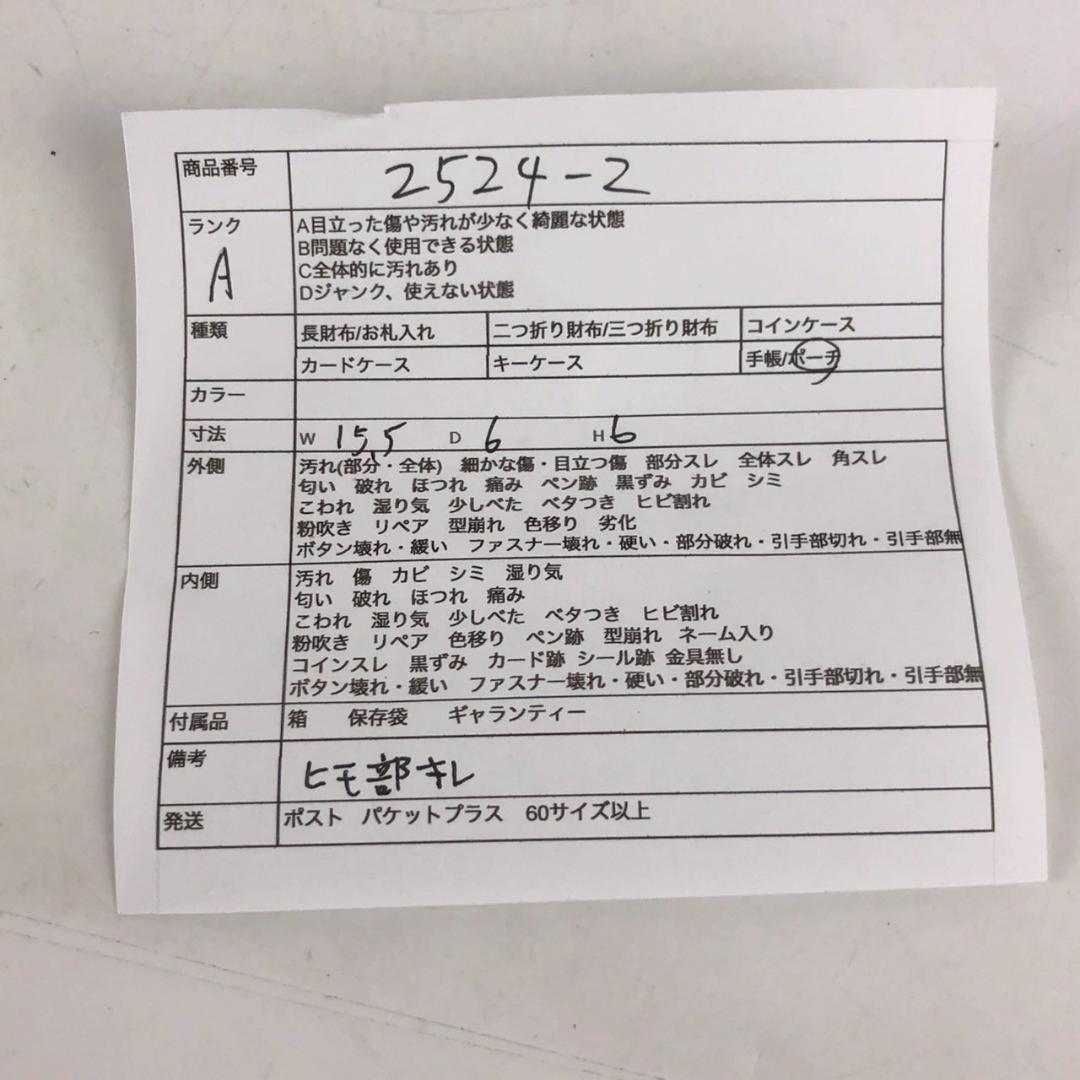 商品番号 2524-2
ランク A
A目立った傷や汚れが少なく綺麗な状態
B問題なく使用できる状態
C全体的に汚れあり
Dジャンク、使えない状態
種類 長財布/お札入れ 二つ折り財布/三つ折り財布 コインケース
カードケース キーケース 手帳/ポーチ
カラー
寸法 W 15,5 D 6 H 6
外側 汚れ(部分・全体) 細かな傷・目立つ傷 部分スレ 全体スレ 角スレ
匂い 破れ ほつれ 痛み ペン跡 黒ずみ カビ シミ
こわれ 湿り気 少しべた ベタつき ヒビ割れ
粉吹き リペア 型崩れ 色移り 劣化
ボタン壊れ・緩い ファスナー壊れ・硬い・部分破れ・引手部切れ・引手部無
内側 汚れ 傷 カビ シミ 湿り気
匂い 破れ ほつれ 痛み
こわれ 湿り気 少しべた ベタつき ヒビ割れ
粉吹き リペア 色移り ペン跡 型崩れ ネーム入り
コインスレ 黒ずみ カード跡 シール跡 金具無し
ボタン壊れ・緩い ファスナー壊れ・硬い・部分破れ・引手部切れ・引手部無
付属品 箱 保存袋 ギャランティー
備考 ヒモ部キレ
発送 ポスト パケットプラス 60サイズ以上